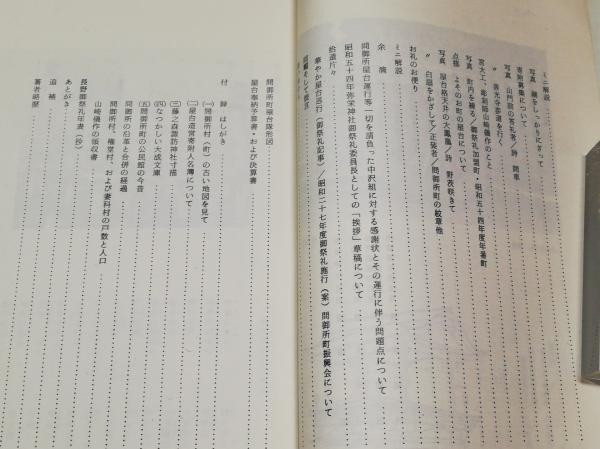 ミニ解説
写真 綱をしっかりにぎって
寄附募集について
写真 山門前の寄礼者／詩 開車
〃 善光寺参道を行く
宮大工、彫刻師山崎儀作のこと
写真 町内を練る／御祭礼加盟町・昭和五十四年度年番町
点描 よそのお町の屋台について
写真 屋台格天井の大鳳凰／詩 野茨咲きて
〃 白扇をかざして／正装者／問御所町の紋章他
お礼のお便り
ミニ解説
余滴
問御所屋台運行等一切を請負った中沢組に対する感謝状とその運行に伴う問題点について
昭和五十四年弥栄神社御祭礼委員長としての「挨拶」草稿について
拾遺片々
華やか屋台巡行（御祭礼記事）／昭和二十七年度御祭礼施行（案）問御所町振興会について
問御所町屋台隊形図
屋台奉納予算書・および決算書
付録 はしがき
(一)問御所村（町）の古い地図を見て
(二)屋台造営寄附人名簿について
(三)藤之森諏訪神社寸描
(四)なつかしい大成文庫
(五)問御所町の公民館の今昔
問御所の沿革と合併の経過
問御所村、権堂村、および妻科村の戸数と人口
山崎儀作の領収書
長野御祭礼年表（抄）
あとがき
追補
著者略歴